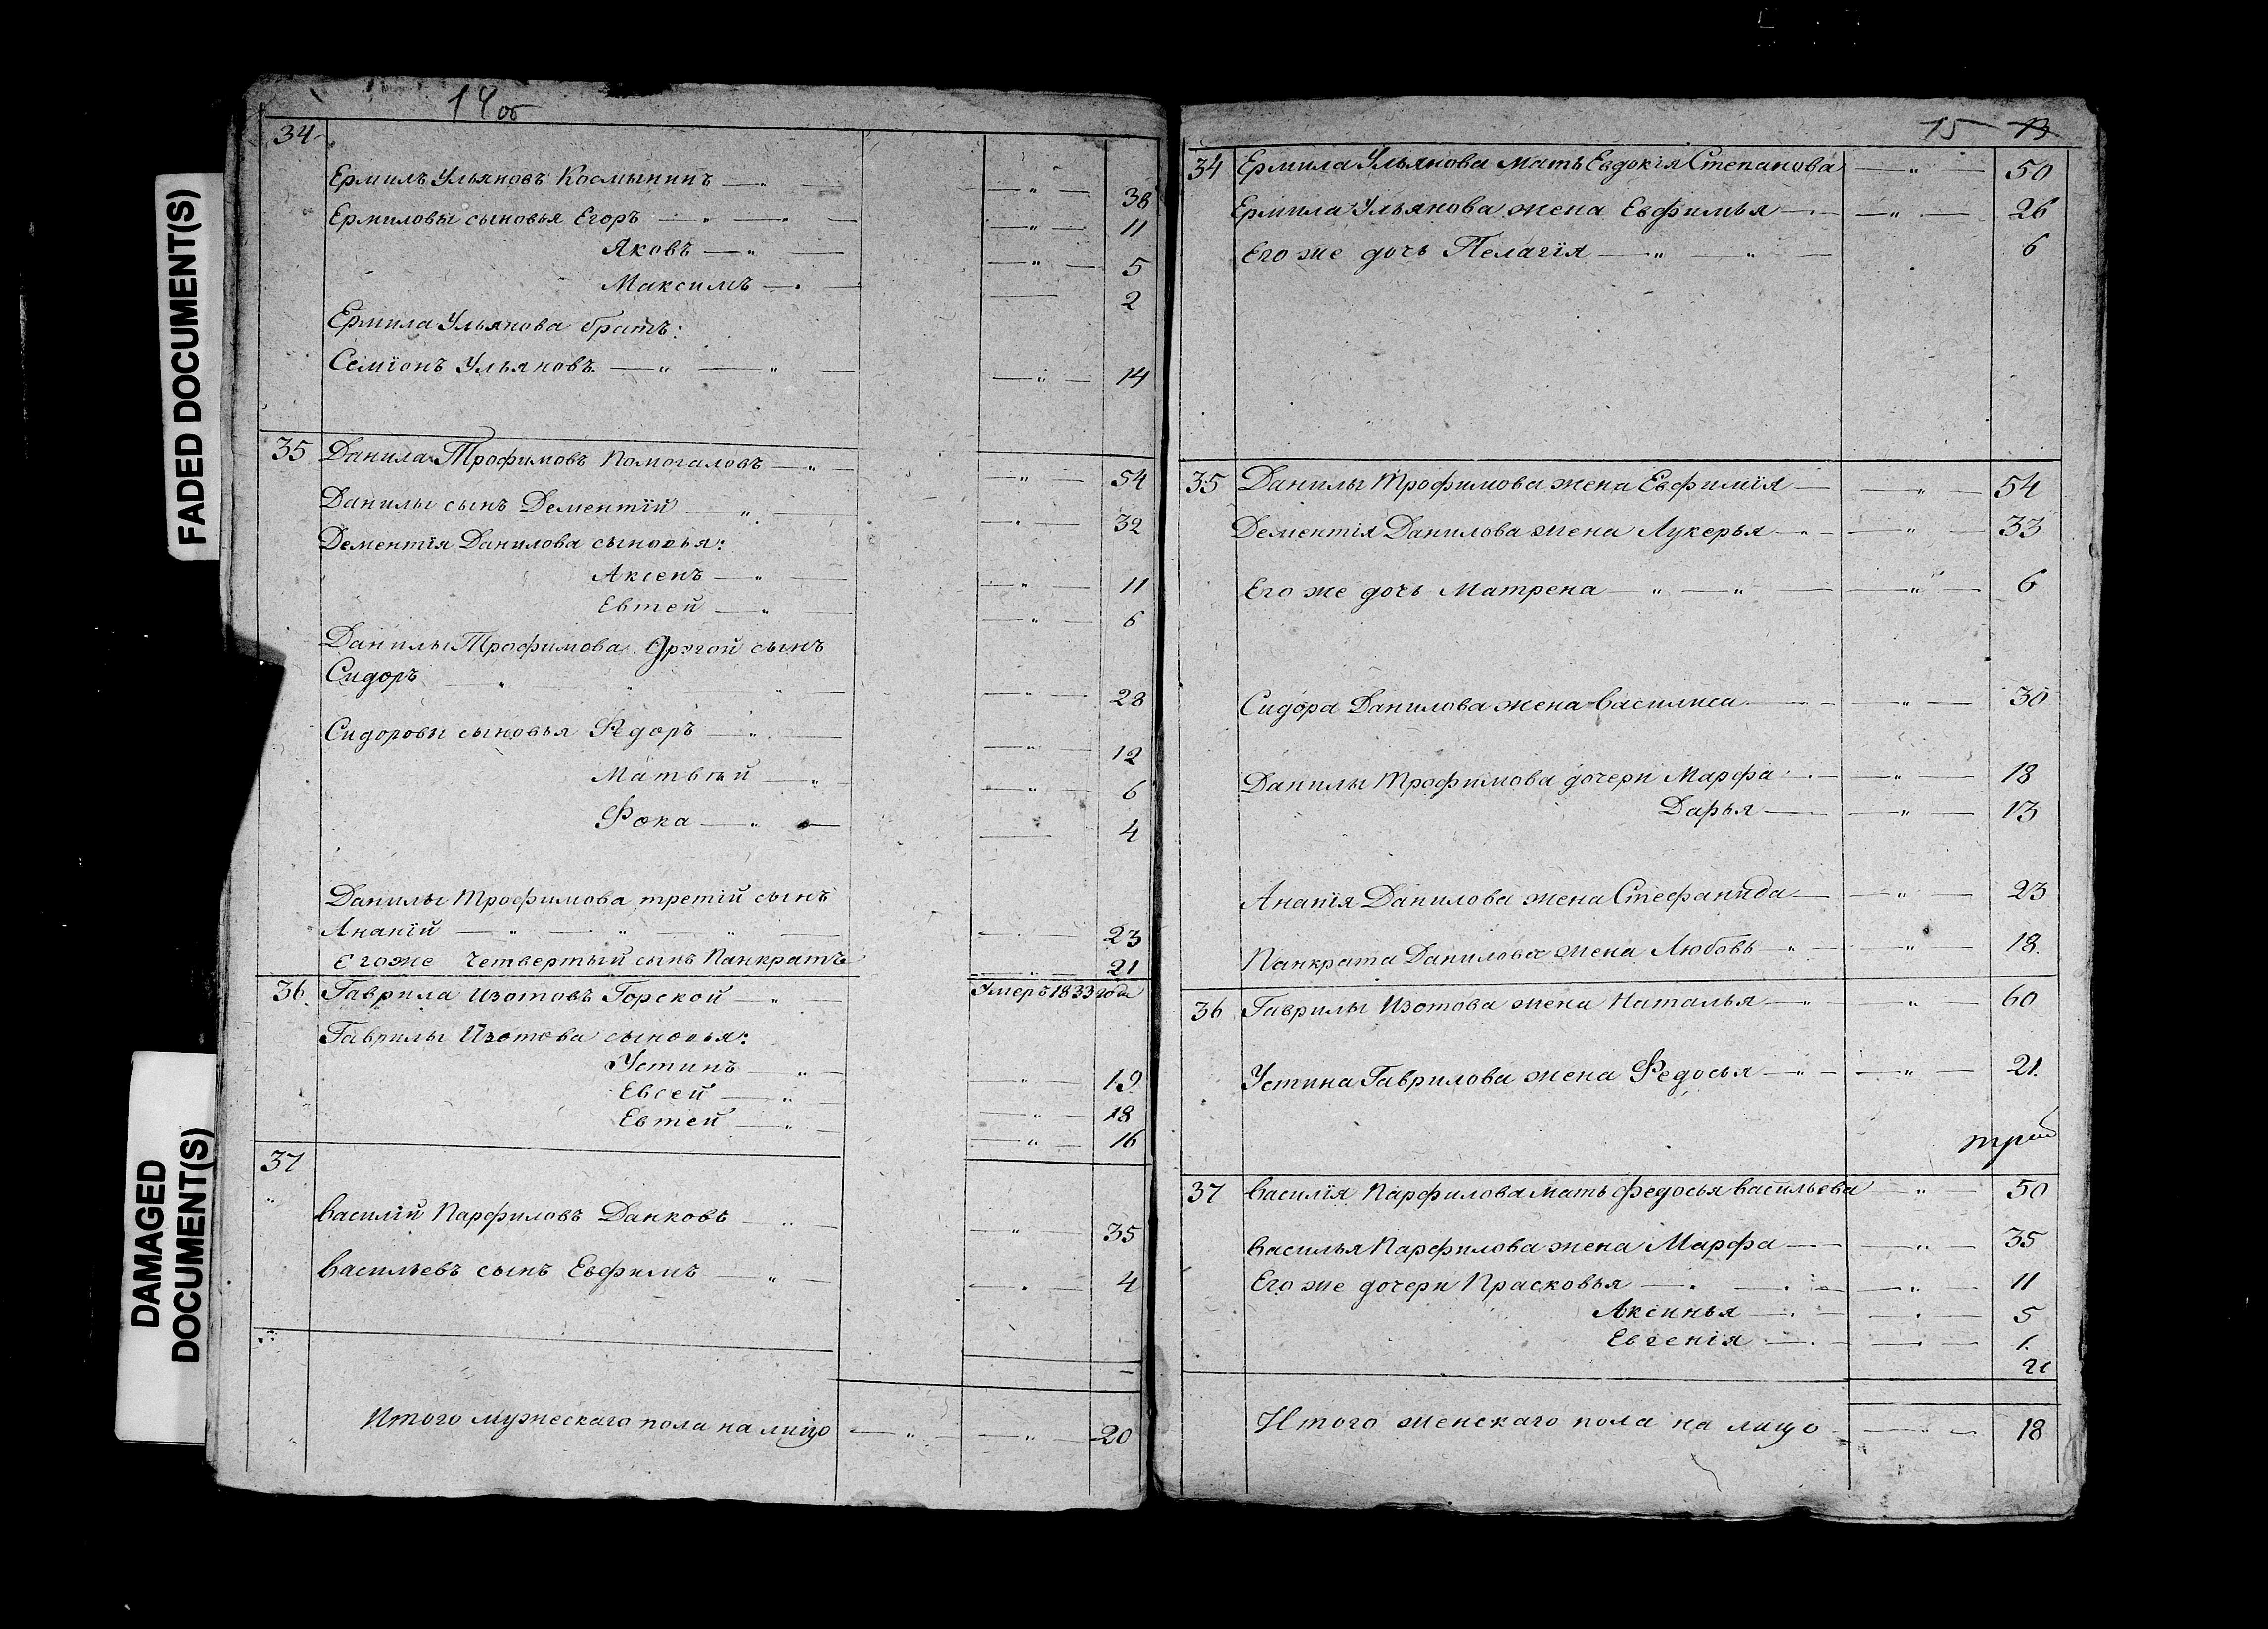 FADED DOCUMENT(S)
DAMAGED
DOCUMENT(S)
14об
34
Ермилъ Ульяновъ Космынинъ — " — — " — 38
Ермиловы сыновья Егоръ — " — " — — " — 11
Яковъ — " — — " — 5
Максимъ — " — — 2
Ермила Ульянова братъ:
Семіонъ Ульяновъ. — " — " — — " — 14
35 Данила Трофимовъ Помогаловъ — " — — " — 54
Данилы сынъ Дементій — " — — " — 32
Дементія Данилова сыновья:
Аксенъ — " — — " — 11
Евтей — " — " — 6
Данилы Трофимова другой сынъ
Сидоръ — " — " — " — — " — 28
Сидоровы сыновья Ѳедоръ — " — — " — 12
Матвѣй — " — " — 6
Фока — " — — 4
Данилы Трофимова третій сынъ
Ананій — " — " — " — — " — 23
Егоже четвертый сынъ Панкратъ — " — 21
36. Гаврила Изотовъ Горской — " Умеръ 1833 года
Гаврилы Изотова сыновья:
Устинъ — " — — " — 19
Евсей — " — — " — 18
Евтей — " — — " — 16
37
Василій Парфиловъ Данковъ — " — — " — 35
Васильевъ сынъ Евфимъ — " — — " — 4
Итого мужескаго пола на лицо — " — — " — 20
15 13
34 Ермила Ульянова мать Евдокія Степанова — " — 50
Ермила Ульянова жена Евфимья — " — — " — 26
Его же дочь Пелагія — " — " — 6
35 Данилы Трофимова жена Евфимія — — " — 54
Дементія Данилова жена Лукерья — " — — " — 33
Его же дочь Матрена — " — " — — " — 6
Сидора Данилова жена Василиса — " — — " — 30
Данилы Трофимова дочери Марфа — " — — " — 18
Дарья — — " — 13
Ананія Данилова жена Стефанида — — " — 23
Панкрата Данилова жена Любовь — " — — " — 18.
36 Гаврилы Изотова жена Наталья — " — — " — 60
Устина Гаврилова жена Ѳедосья — " — — " — 21.
37 Василія Парфилова мать Федосья Васильева — " — 50
Василья Парфилова жена Марфа — — " — 35
Его же дочери Прасковья — " — " — — " — 11
Аксинья — " — — " — 5
Евгенія — " — — " — 1.
Итого женскаго пола на лицо — " — 18